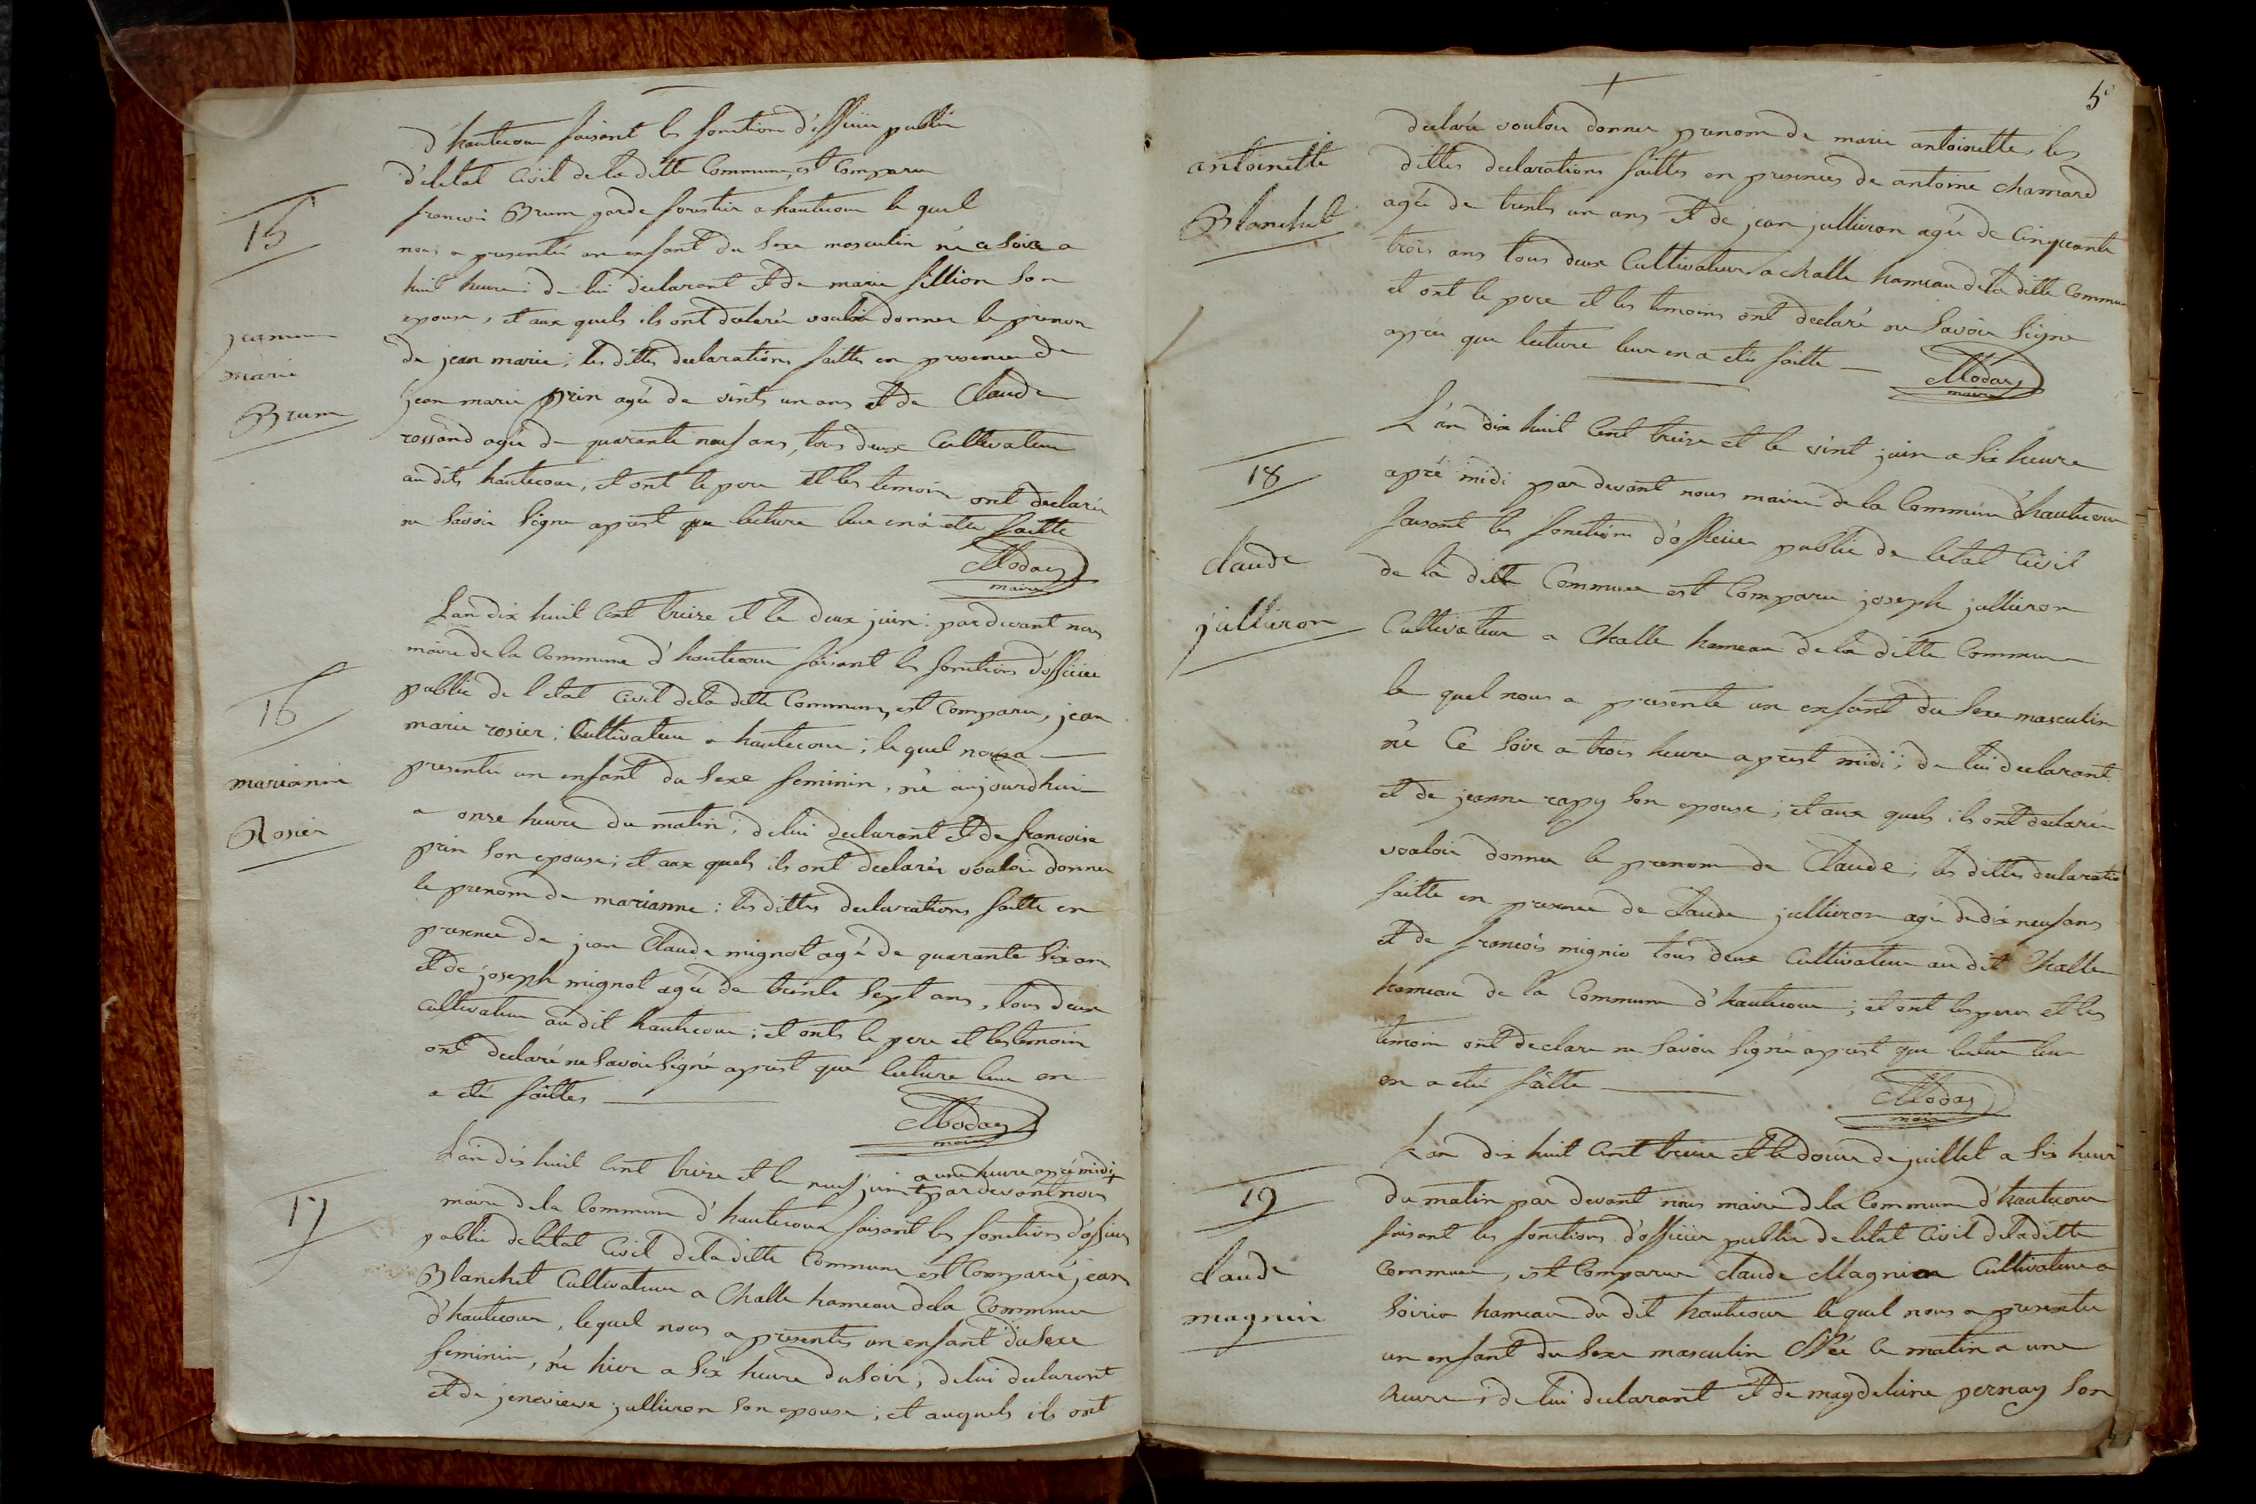 d'hautecour faisant les fonctions d'officier public
d'eletat Civil de la ditte Commune, est Comparu
francois Brum garde forestier a hautecour le quel
15
nous a presentés un enfant du Sexe masculin né a Soire a
huit heure : de lui declarant et de marie fillion Son
epouse, et aux quels ils ont declarés vouloir donner le prenom
jeanne
marie
Brum
de jean marie ; les dittes declarations faitte en presence de
jean marie prin agé de vints un ans et de Claude
rossand agé de quarante neuf ans, tous deux Cultivateur
au dits hautecour, et ont le pere et les temoin ont declarés
ne Savoir Signe aprest que lecture leur en a etée faitte
Moday
maire
L'an dix huit Cent treize et le deux juin : par devant nous
maire de la Commune d'hautecour faisant les fonctions d'officier
16
public de l'etat Civil de la ditte Commune, est Comparu, jean
marie rosier ; Cultivateur a hautecour ; le quel nous a
marianne
Rosier
presentée un enfant du Sexe feminin, né aujourdhuis
a onze heure du matin ; de lui declarant et de francoise
prin Son epouse ; et aux quels ils ont declarés vouloir donner
le prenom de marianne : les dittes declarations faitte en
presence de jean Claude mignot agé de quarante Six ans
et de joseph mignot agé de trente Sept ans, tous deux
Cultivateur au dit hautecour ; et onts le pere et les temoin
ont declaré ne Savoir Signé aprest que lecture leur en
a eté faittes
Moday
maire
17
L'an dix huit Cent treize et le neuf juin a une heure apré midi
par devant nous
maire de la Commune d'hautecour faisant les fonctions d'officier
public de letat Civil de la ditte Commune est Comparu jean
Blanchet Cultivateur a Challe hameau de la Commune
d'hautecour, le quel nous a presentés un enfant du Sexe
feminin, né hier a Six heure du Soir ; de lui declarant
et de jenevieve jullieron Son epouse ; et auquels ils ont
5
antoinette
Blanchet
declarés vouloir donner prenom de marie antoinette, les
dittes declarations faittes en presences de antoine chamard
agée de trente un ans et de jean jullieron agée de Cinquante
trois ans tous deux Cultivateur a challe hameau de la ditte Commune
et ont le pere et les temoins ont declaré ne Savoir Signe
aprée que lecture leur en a etée faitte
Moday
maire
18
L'an dix huit Cent treize et le vint juin a Six heure
apré midi par devant nous maire de la Commune d'hautecour
faisant les fonctions d'officier public de letat Civil
claude
jullieron
de la ditte Commune est Comparu joseph jullieron
Cultivateur a Challe hameau de la ditte Commune
le quel nous a presenté un enfant du Sexe masculin
né Ce Soir a trois heure aprest midi ; de lui declarant
et de jeanne rapy Son epouse ; et aux quels ils ont declarés
vouloir donner le prenom de Claude ; les dittes declaratio
faitte en presence de Claude jullieron agé de dix neuf ans
et de francois mignio tous deux Cultivateur au dit Challe
hameau de la Commune d'hautecour ; et ont les peres et les
temoin ont declare ne Savoir Signé aprest que lecture leur
en a eté faitte
Moday
maire
19
claude
magnin
L'an dix huit Cent treize et le douze de juillet a Six heure
du matin par devant nous maire de la Commune d'hautecour
faisant les fonctions d'officier public de letat Civil de la ditte
Commune, est Comparu Claude Magnion Cultivateur a
Soirio hameau du dit hautecour le quel nous a presentée
un enfant du Sexe masculin Née le matin a une
heure ; de lui declarant et de magdeleine pernay Son